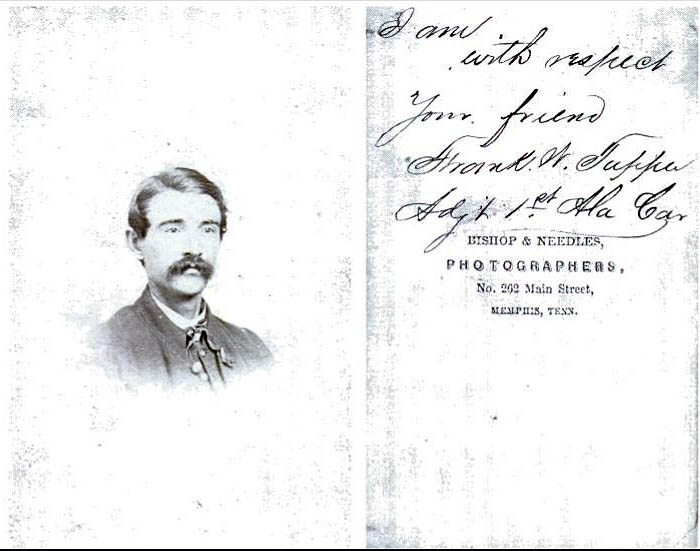 I am
with respect
Your friend
Frank. W. Tupper
Adjt 1st Ala Cav
BISHOP & NEEDLES,
PHOTOGRAPHERS,
No. 262 Main Street,
MEMPHIS, TENN.